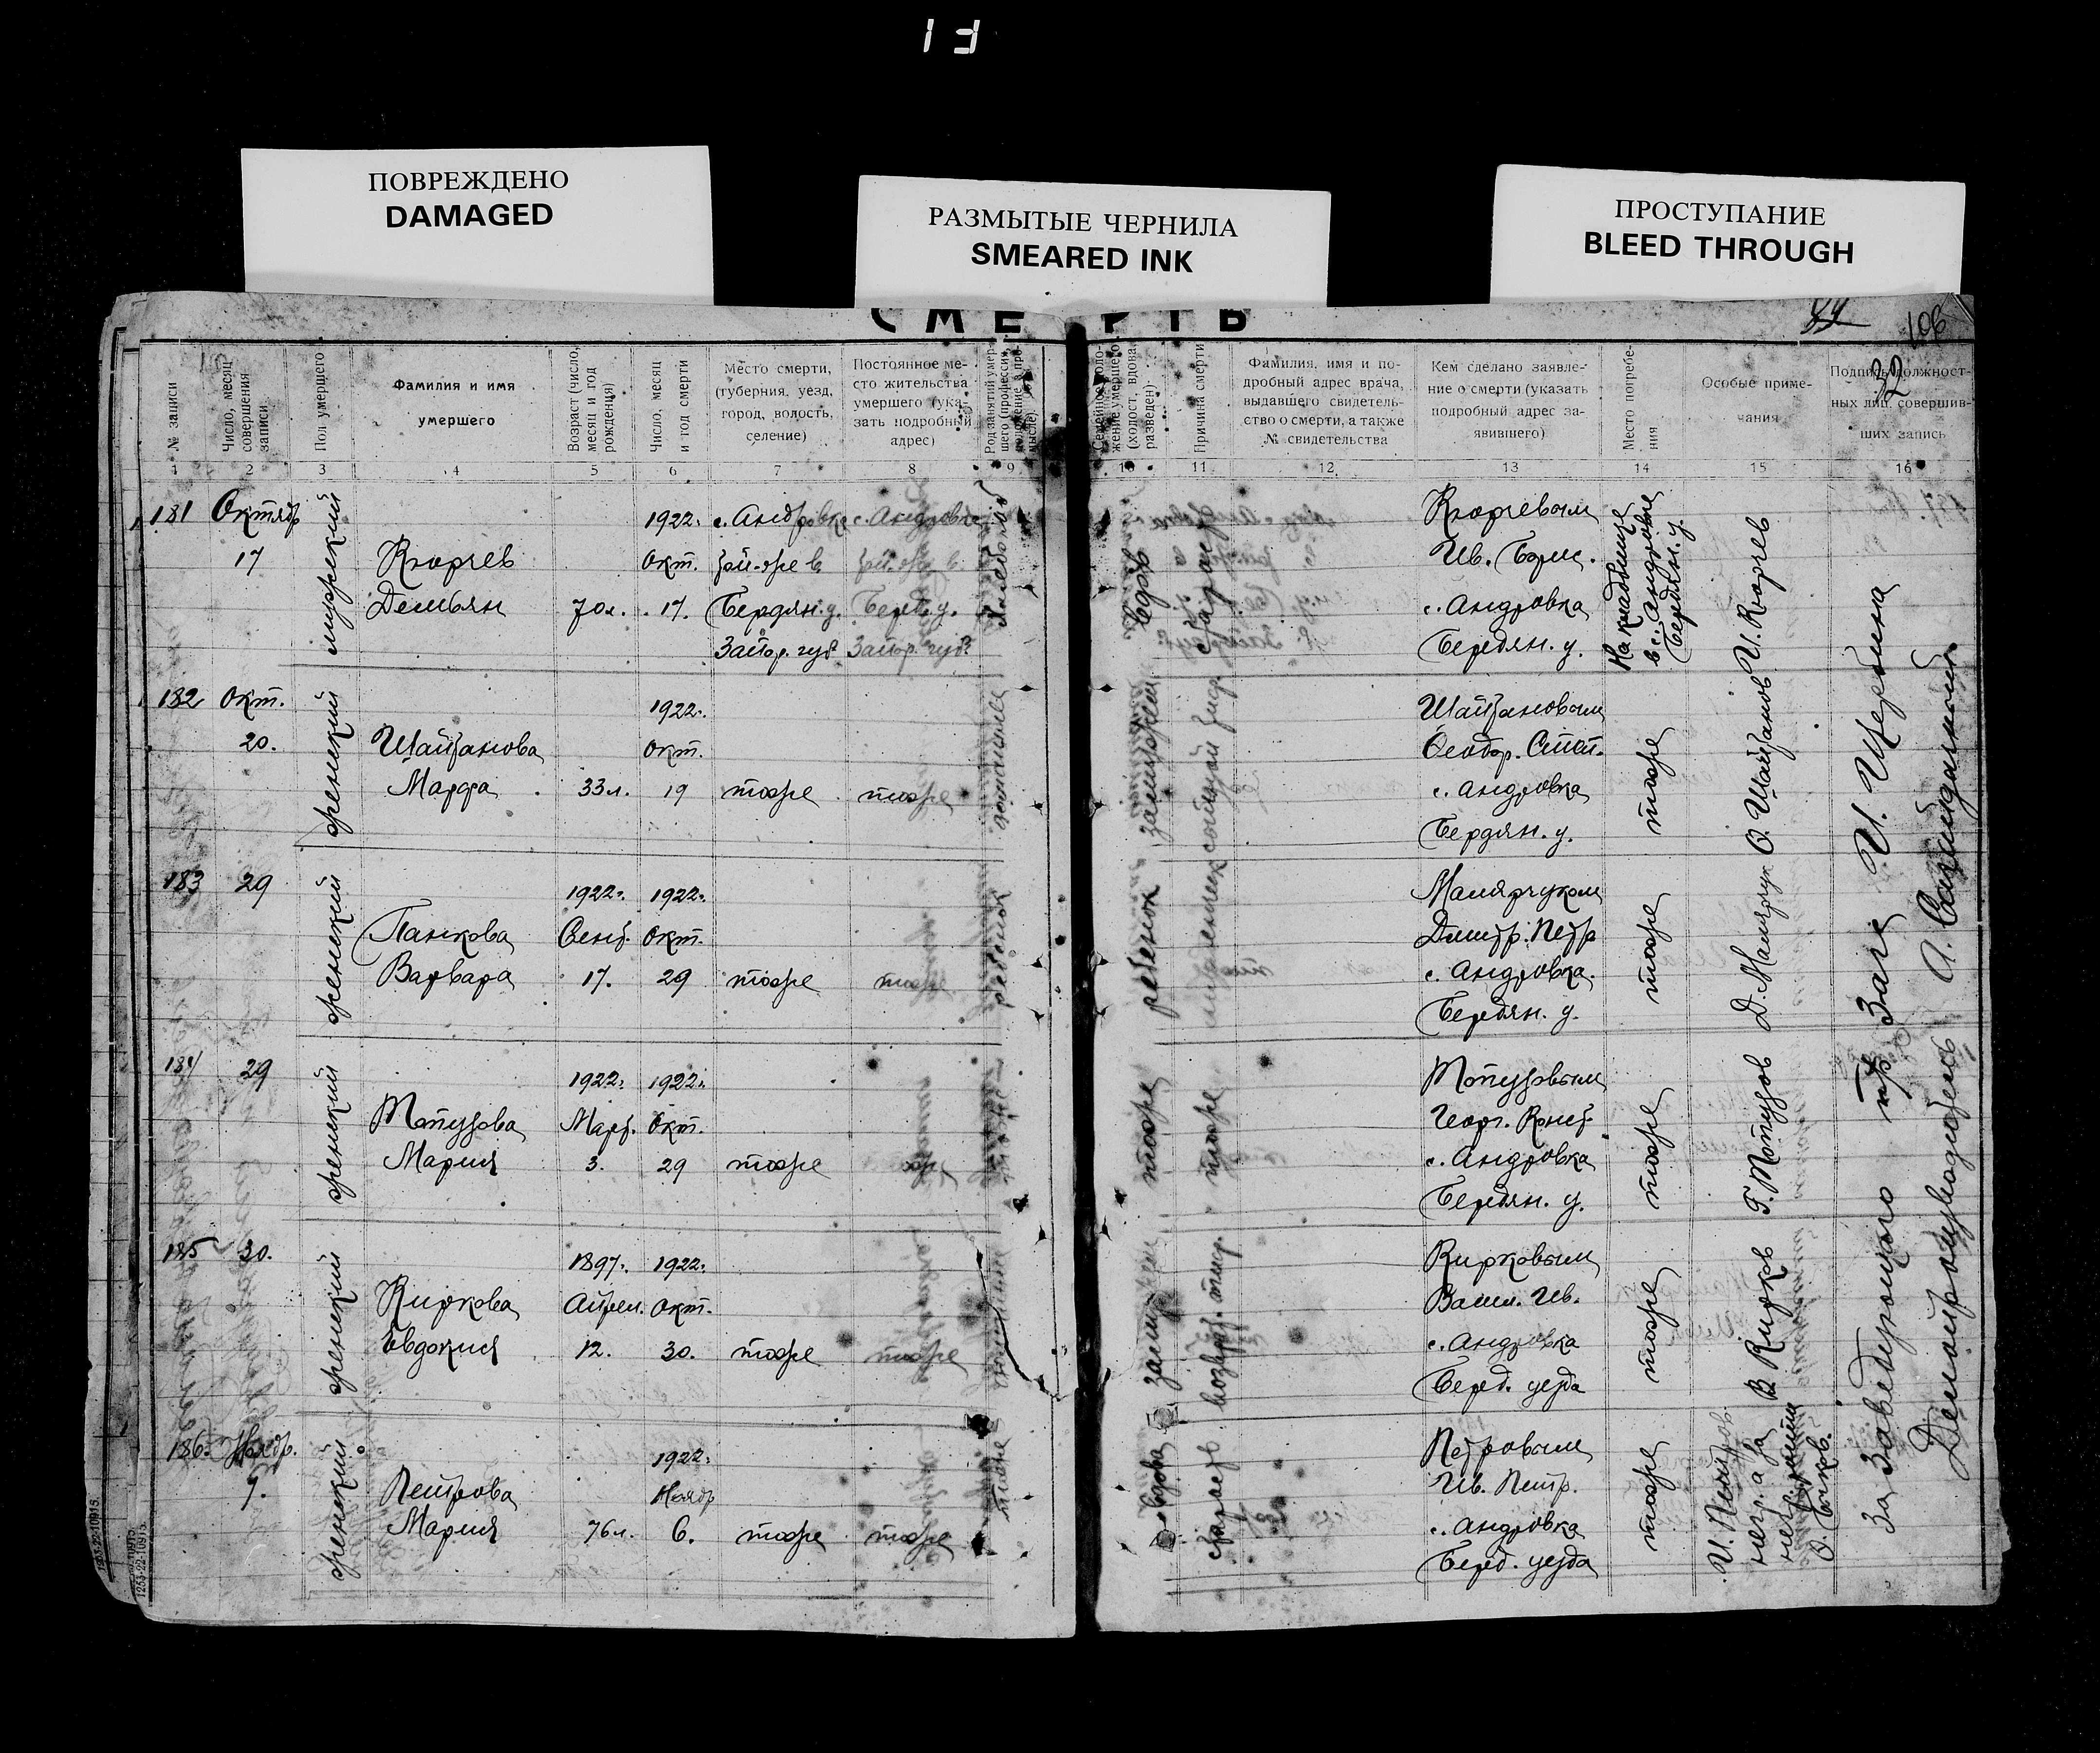 13
ПОВРЕЖДЕНО
DAMAGED
РАЗМЫТЫЕ ЧЕРНИЛА
SMEARED INK
ПРОСТУПАНИЕ
BLEED THROUGH
СМЕРТЬ
106
32
№ записи
Число, месяц совершения записи
Пол умершего
Фамилия и имя умершего
Возраст (число, месяц и год рождения)
Число, месяц и год смерти
Место смерти, (губерния, уезд, город, волость, селение)
Постоянное место жительства умершего (указать подробный адрес)
Род занятий умершего (профессия,
Семейное положение умершего (холост, вдова, разведен)
Причина смерти
Фамилия, имя и подробный адрес врача, выдавшего свидетельство о смерти, а также № свидетельства
Кем сделано заявление о смерти (указать подробный адрес заявившего)
Место погребения
Особые примечания
Подпись должностных лиц, совершивших запись
1 2 3 4 5 6 7 8 9 10 11 12 13 14 15 16
181 Октябр 1922г. с. Андровка с. Андровка Кюрчевым
17 Кюрчев Окт. Ив. Борис.
Демьян 70л. 17. Бердян. у. Берд. у. с. Андровка
Запор. губ. Запор. губ. Бердян. у.
мужской
вдов
старость
На кладбище
в с. Андровке
Бердян. у.
И. Кюрчев
182 Окт. 1922г. Шайтановым
20. Шайтанова Окт. Феодор. Степ.
Марфа 33л. 19 тоже тоже с. Андровка
Бердян. у.
женский
тоже
Ф. Шайтанов
183 29 1922г. 1922г. Малярчуком
Панкова Сент. Окт. Дмитр. Петр
Варвара 17. 29 тоже тоже с. Андровка
Бердян. у.
женский
ребенок
ребенок
тоже
Д. Малярчук
184 29 1922г. 1922г. Топузовым
Топузова Март. Окт. Георг. Конст.
Мария 3. 29 тоже тоже с. Андровка
Бердян. у.
женский
тоже
тоже
тоже
Г. Топузов
185 30. 1897г. 1922г. Кирковым
Киркова Апрел. Окт. Васил. Ив.
Евдокия 12. 30. тоже тоже с. Андровка
Берд. уезда
женский
возврат. тиф
тоже
В. Кирков
186. Ноябр. 1922г. Петровым
7. Петрова Ноябр Ив. Петр.
Мария 76л. 6. тоже тоже с. Андровка
Берд. уезда
женский
тоже
вдова
старость
тоже
За Заведующего
пр Загс И. Щербина
Делопроизводитель А.
1253-22-10915